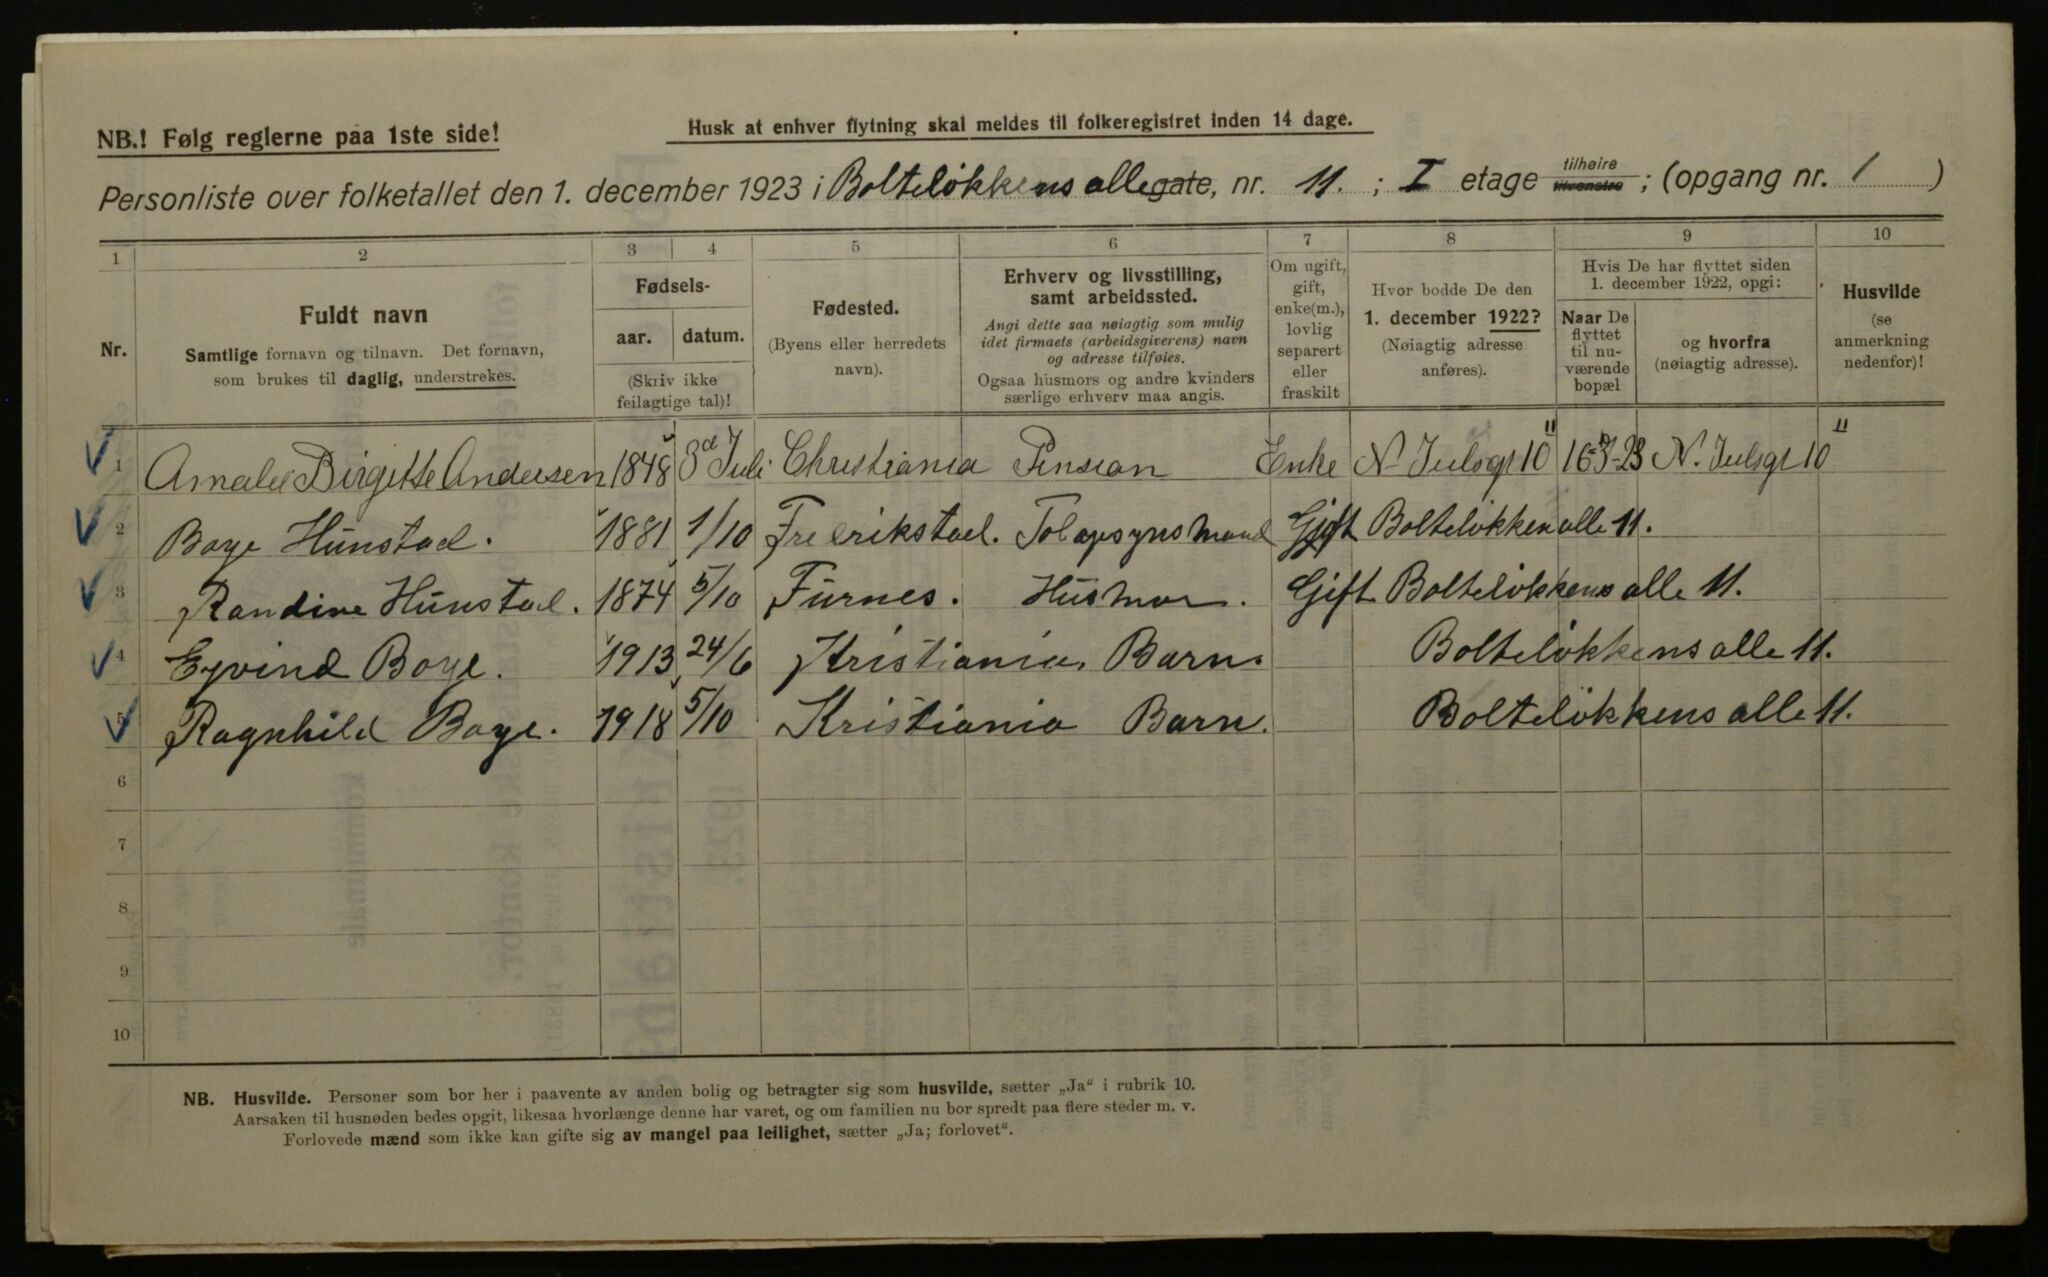 NB.! Følg reglerne paa 1ste side!
Husk at enhver flytning skal meldes til folkeregistret inden 14 dage.
Personliste over folketallet den 1. december 1923 i Bolteløkkens alle gate, nr. 11. ; I etage tilhøire tilvenstre ; (opgang nr. 1 )
1 2 3 4 5 6 7 8 9 10
Nr.
Fuldt navn
Samtlige fornavn og tilnavn. Det fornavn,
som brukes til daglig, understrekes.
Fødsels-
aar. datum.
(Skriv ikke
feilagtige tal)!
Fødested.
(Byens eller herredets
navn).
Erhverv og livsstilling,
samt arbeidssted.
Angi dette saa nøiagtig som mulig
idet firmaets (arbeidsgiverens) navn
og adresse tilføies.
Ogsaa husmors og andre kvinders
særlige erhverv maa angis.
Om ugift,
gift,
enke(m.),
lovlig
separert
eller
fraskilt
Hvor bodde De den
1. december 1922?
(Nøiagtig adresse
anføres).
Hvis De har flyttet siden
1. december 1922, opgi:
Naar De
flyttet
til nu-
værende
bopæl
og hvorfra
(nøiagtig adresse).
Husvilde
(se
anmerkning
nedenfor)!
1 Birgitte Andersen 1848 Juli Christiania Pension Enke N. Julsgt 10 II 16-3-23 N. Julsgt 10 II
2 Boye Hunstad. 1881 1/10 Fredrikstad. Tolopsynsmand Gift Bolteløkken alle 11.
3 Randine Hunstad. 1874 5/10 Furnes. Husmor. Gift Bolteløkkens alle 11.
4 Eyvind Boye. 1913 24/6 Kristiania. Barn. Bolteløkkens alle 11.
5 Ragnhild Boye. 1918 5/10 Kristiania Barn. Bolteløkkens alle 11.
6
7
8
9
10
NB. Husvilde. Personer som bor her i paavente av anden bolig og betragter sig som husvilde, sætter „Ja“ i rubrik 10.
Aarsaken til husnøden bedes opgit, likesaa hvorlænge denne har varet, og om familien nu bor spredt paa flere steder m. v.
Forlovede mænd som ikke kan gifte sig av mangel paa leilighet, sætter „Ja; forlovet“.